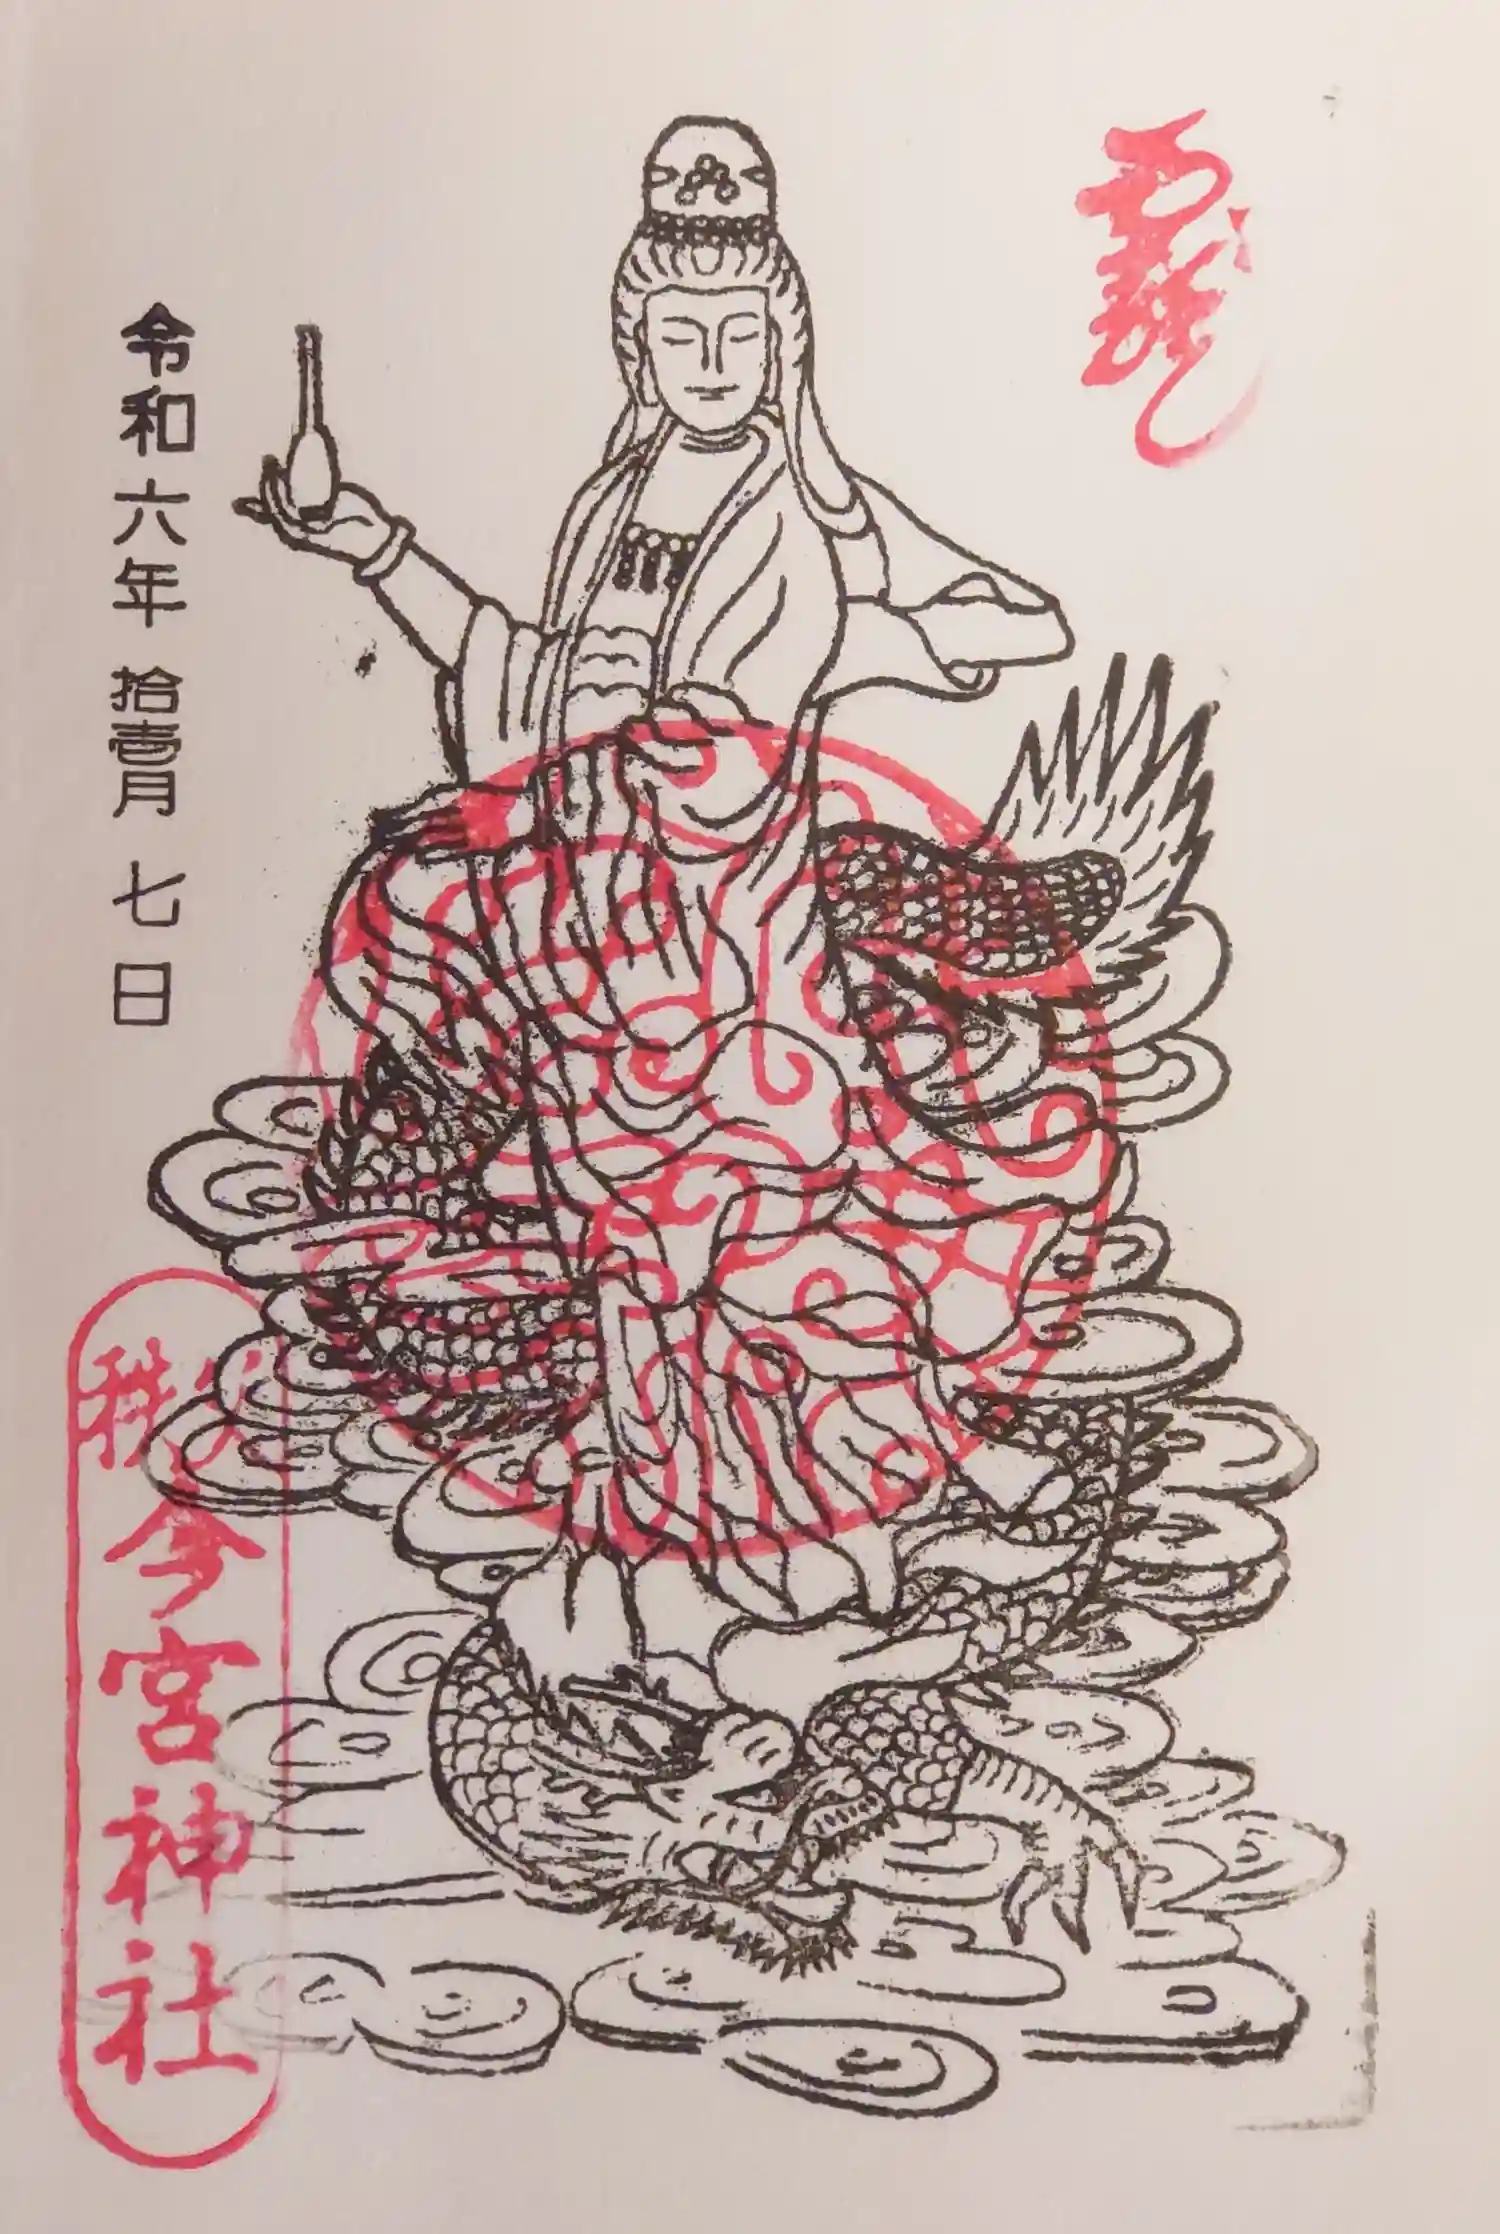 令和六年拾壹月七日
秩父今宮神社